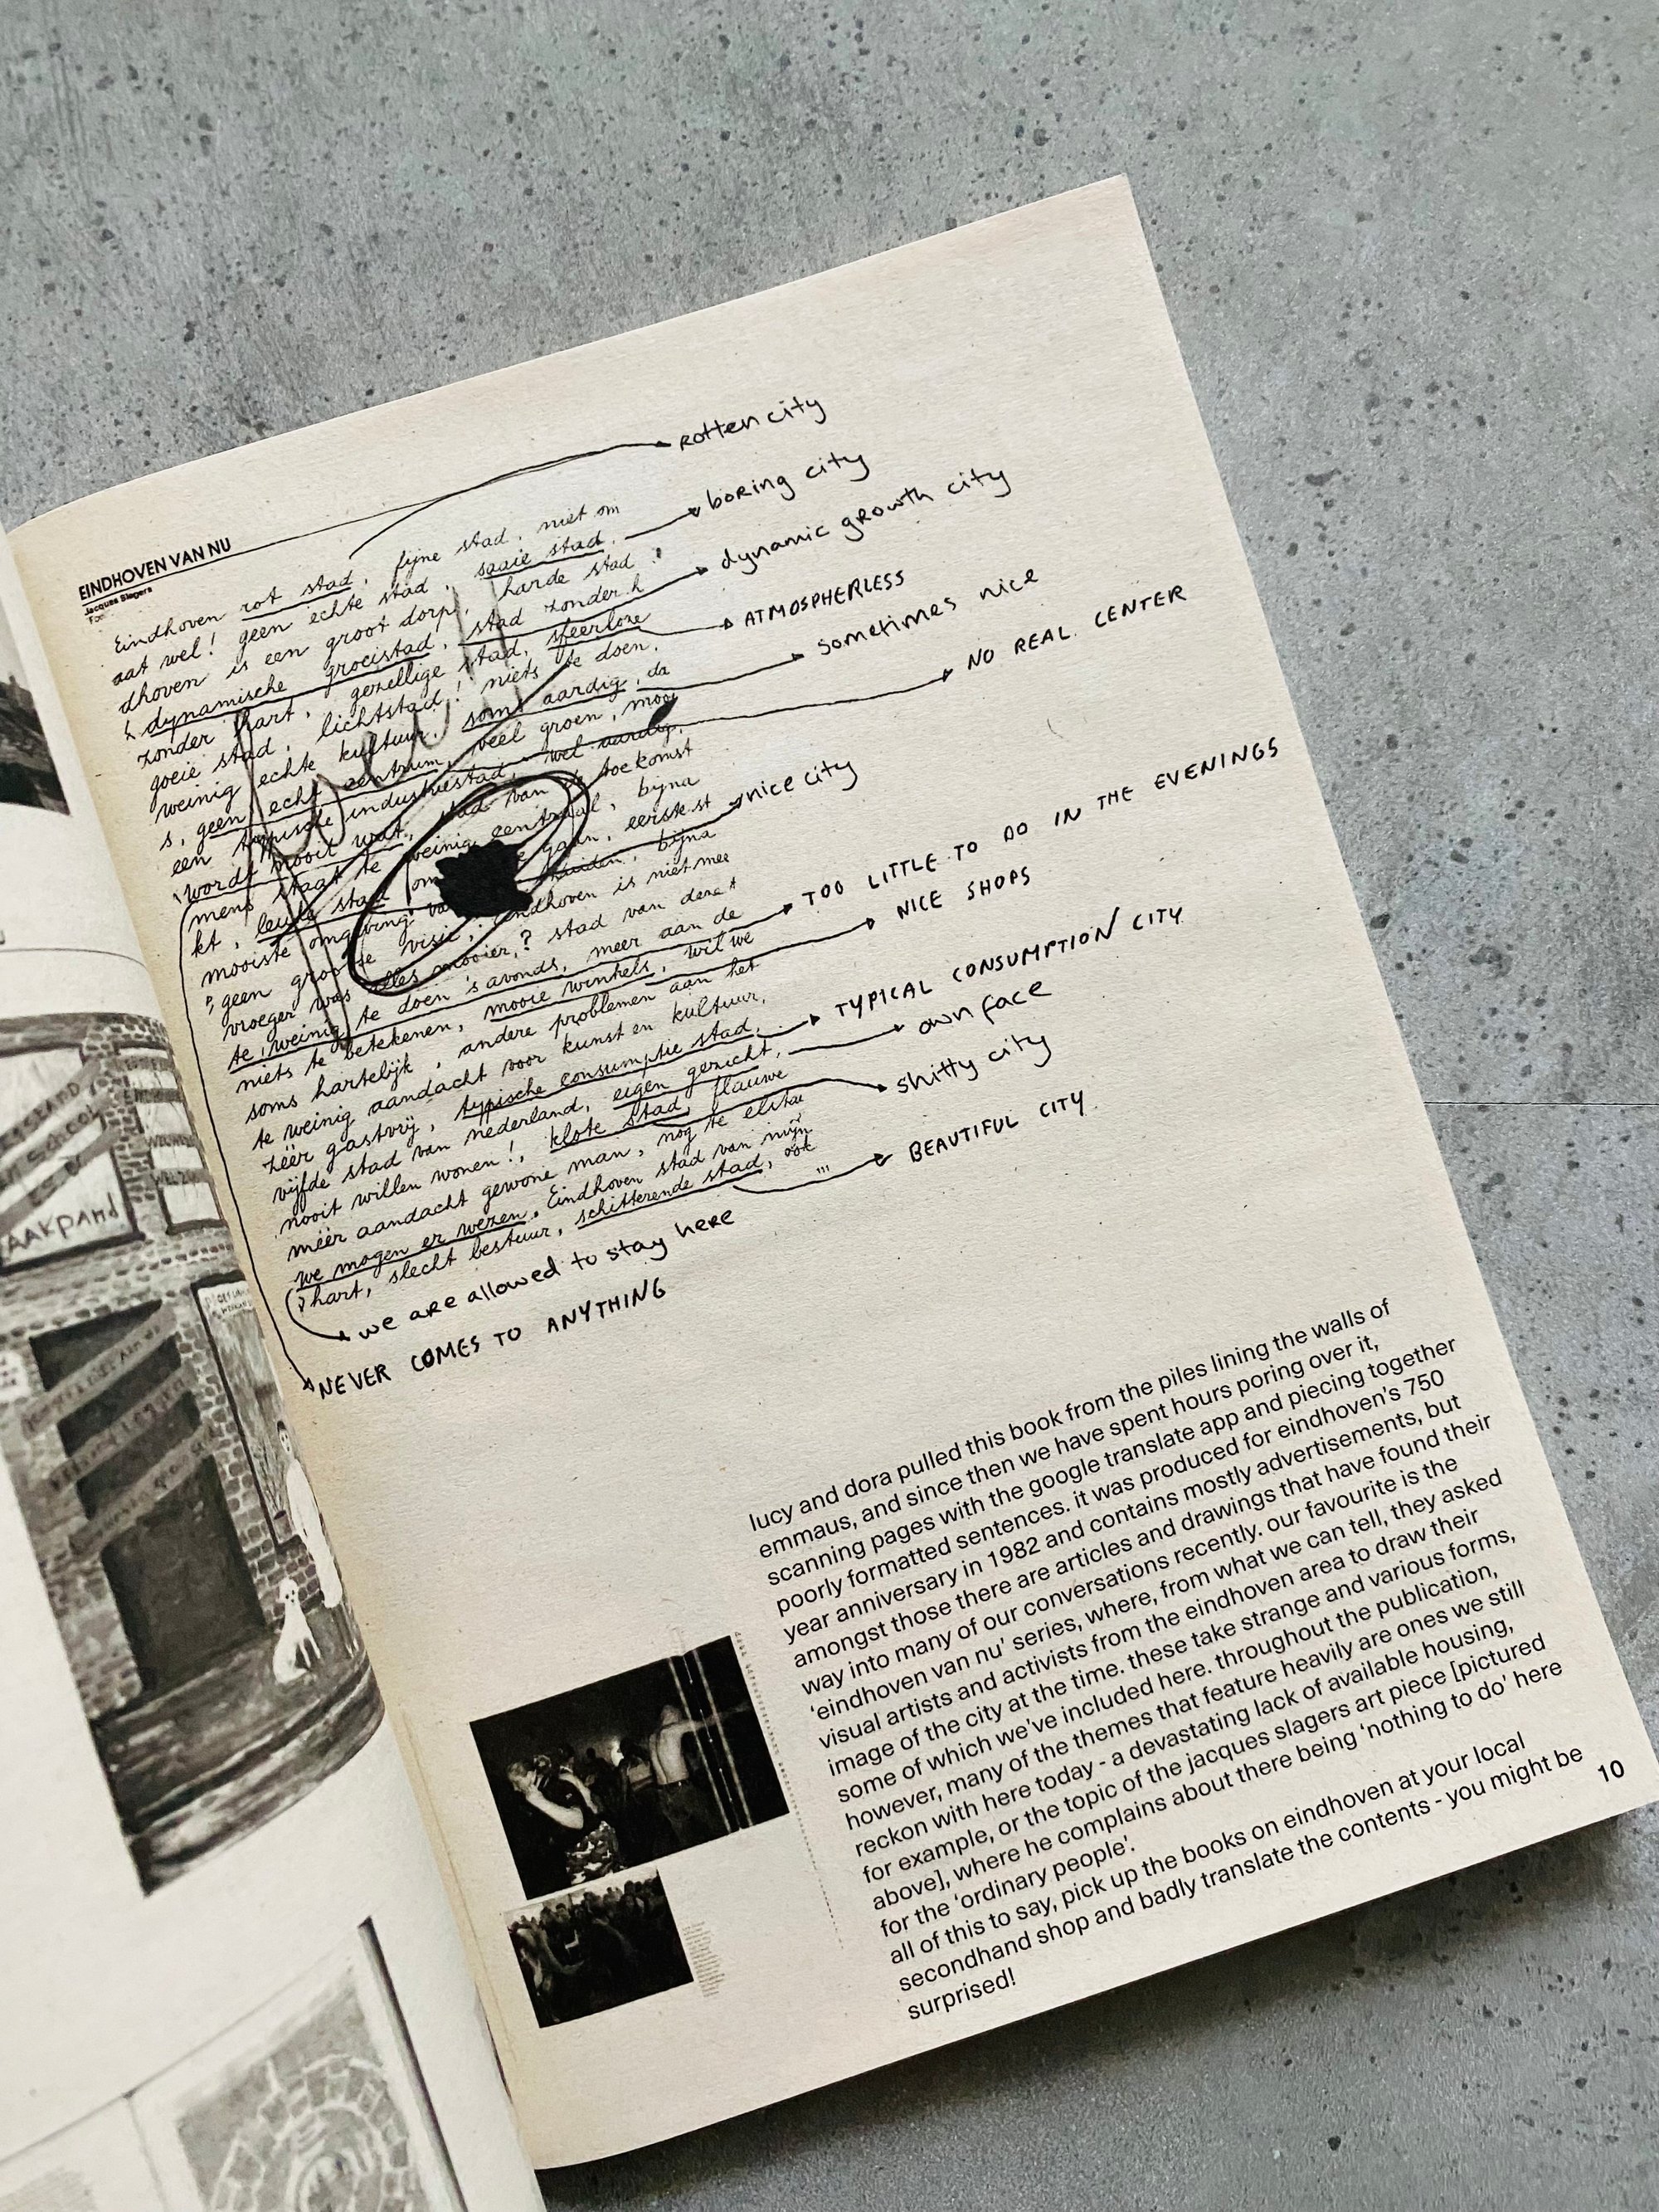 EINDHOVEN VAN NU
Jacques Slegers
Eindhoven rot stad, fijne stad, niet om
aat wel! geen echte stad, saaie stad,
dhoven is een groot dorp, harde stad
dynamische groeistad, stad zonder h
zonder hart, gezellige stad, sfeerloze
goeie stad, lichtstad! niets te doen,
weinig echte kultuur, soms aardig, da
s, geen echt centrum, veel groen, mooi
een typische industriestad, wel aardig,
wordt nooit wat, stad van de toekomst
mens staat te weinig centraal, bijna
kt, leuke stad om te gaan, eerste st
mooiste omgeving bijna
geen grootse visie, Eindhoven is niet mee
vroeger was alles mooier,? stad van dere
te weinig te doen 's avonds, meer aan de
niets te betekenen, mooie winkels, wil we
soms hartelijk, andere problemen aan het
te weinig aandacht voor kunst en kultuur,
zéér gastvrij, typische consumptie stad,
vijfde stad van nederland, eigen gezicht,
nooit willen wonen!, klote stad, flauwe
méér aandacht gewone man, nog te
we mogen er wezen, Eindhoven stad van mijn
hart, slecht bestuur, schitterende stad, ook ...
rotten city
boring city
dynamic growth city
ATMOSPHERLESS
sometimes nice
NO REAL CENTER
nice city
TOO LITTLE TO DO IN THE EVENINGS
NICE SHOPS
TYPICAL CONSUMPTION CITY
own face
shitty city
BEAUTIFUL CITY
we are allowed to stay here
NEVER COMES TO ANYTHING
AAKPAND
lucy and dora pulled this book from the piles lining the walls of
emmaus, and since then we have spent hours poring over it,
scanning pages with the google translate app and piecing together
poorly formatted sentences. it was produced for eindhoven's 750
year anniversary in 1982 and contains mostly advertisements, but
amongst those there are articles and drawings that have found their
way into many of our conversations recently. our favourite is the
'eindhoven van nu' series, where, from what we can tell, they asked
visual artists and activists from the eindhoven area to draw their
image of the city at the time. these take strange and various forms,
some of which we've included here. throughout the publication,
however, many of the themes that feature heavily are ones we still
reckon with here today - a devastating lack of available housing,
for example, or the topic of the jacques slagers art piece [pictured
above], where he complains about there being 'nothing to do' here
for the 'ordinary people'.
all of this to say, pick up the books on eindhoven at your local
secondhand shop and badly translate the contents - you might be
surprised!
10